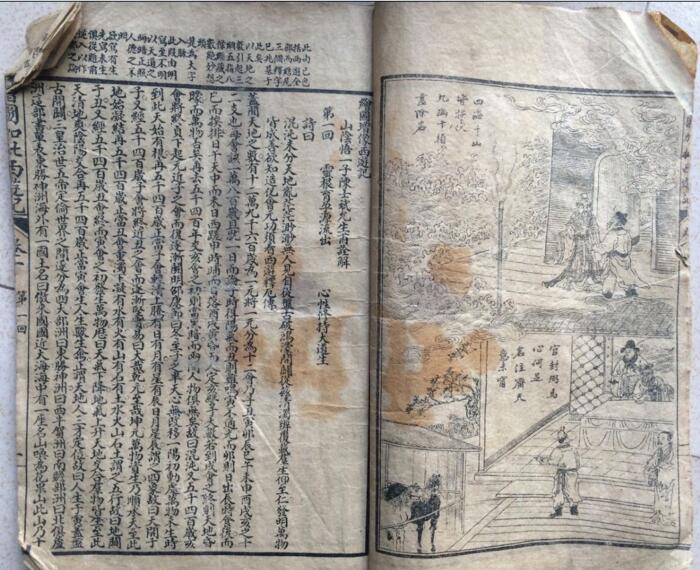 四海千山
皆拱伏
九幽十類
盡除名
官封弼馬
心何足
名注齊天
意未寧
此矣
以天地之
數引起三
繪圖增像西遊記
山陰悟一子陳士斌允生甫詮解
第一回 靈根育孕源流出 心性修持大道生
詩曰
混沌未分天地亂茫茫渺渺無人見自從盤古破鴻濛開闢從茲清濁辨覆載群生仰至仁發明萬物
皆成善欲知造化會元功須看西遊釋厄傳
蓋聞天地之數有十二萬九千六百歲為一元將一元分為十二會乃子丑寅卯辰巳午未申酉戌亥之十
二支也每會該一萬八百歲且就一日而論子時得陽氣而丑則雞鳴寅不通光而卯則日出辰時食後而
巳而挨排日午天中而未日西蹉申時晡而日落酉戌黃昏而人定亥譬于大數若到戌會之終則天地昏
曚而萬物否矣再去五千四百歲交亥會之初則當黑暗而兩間人物俱無矣故曰混沌又五千四百歲亥
會將終貞下起元近子之會而復逐漸開明邵康節曰冬至子之半天心無改移一陽初動處萬物未生時
到此天始有根再五千四百歲正當子會輕清上騰有日有月有星有辰日月星辰謂之四象故曰天開于
子又經五千四百歲子會將終近丑之會而逐漸堅實易曰大哉乾元至哉坤元萬物資生乃順承天至此
地始凝結再五千四百歲正當丑會重濁下凝有水有火有山有石有土水火山石土謂之五形故曰地闢
于丑又經五千四百歲丑會終而寅會之初發生萬物歷曰天氣下降地氣上升天地交合群物皆生至此
天清地爽陰陽交合再五千四百歲正當寅會生人生獸生禽正謂天地人三才定位故曰人生于寅感盤
古開闢三皇治世五帝定倫世界之間遂分為四大部洲曰東勝神洲曰西牛賀洲曰南贍部洲曰北俱蘆
洲這部書單表東勝神洲海外有一國土名曰傲來國國近大海海中有一座名山喚為花果山此山乃十
西遊記 卷一 第一回